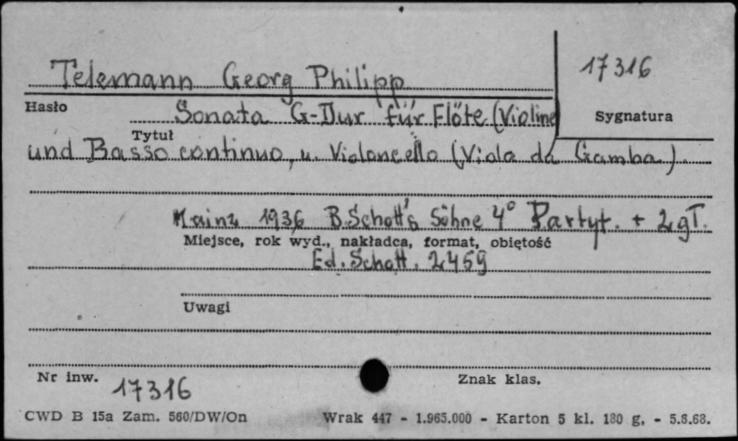 17316
Telemann Georg Philipp
Hasło
Sonata G-Dur für Flöte (Violine
Sygnatura
Tytuł
und Basso continuo, u. Violoncello (Viola da Gamba)
Mainz 1936 B. Schott's Söhne 4° Partyt. + 2 gł.
Miejsce, rok wyd., nakładca, format, objętość
Ed. Schott. 2459
Uwagi
Nr inw. 17316
Znak klas.
CWD B 15a Zam. 560/DW/On Wrak 447 - 1.965.000 - Karton 5 kl. 180 g. - 5.8.68.